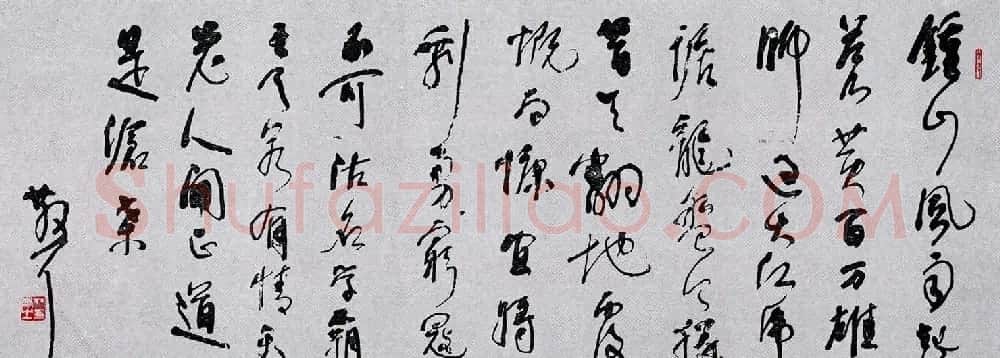 鍾山風雨起
苍黄百万雄
師过大江虎
踞龍盤今勝
昔天翻地覆
慨而慷宜將
剩勇窮寇
不可沽名学霸
王天若有情天
老人間正道
是滄桑
Shufaziliao.COM